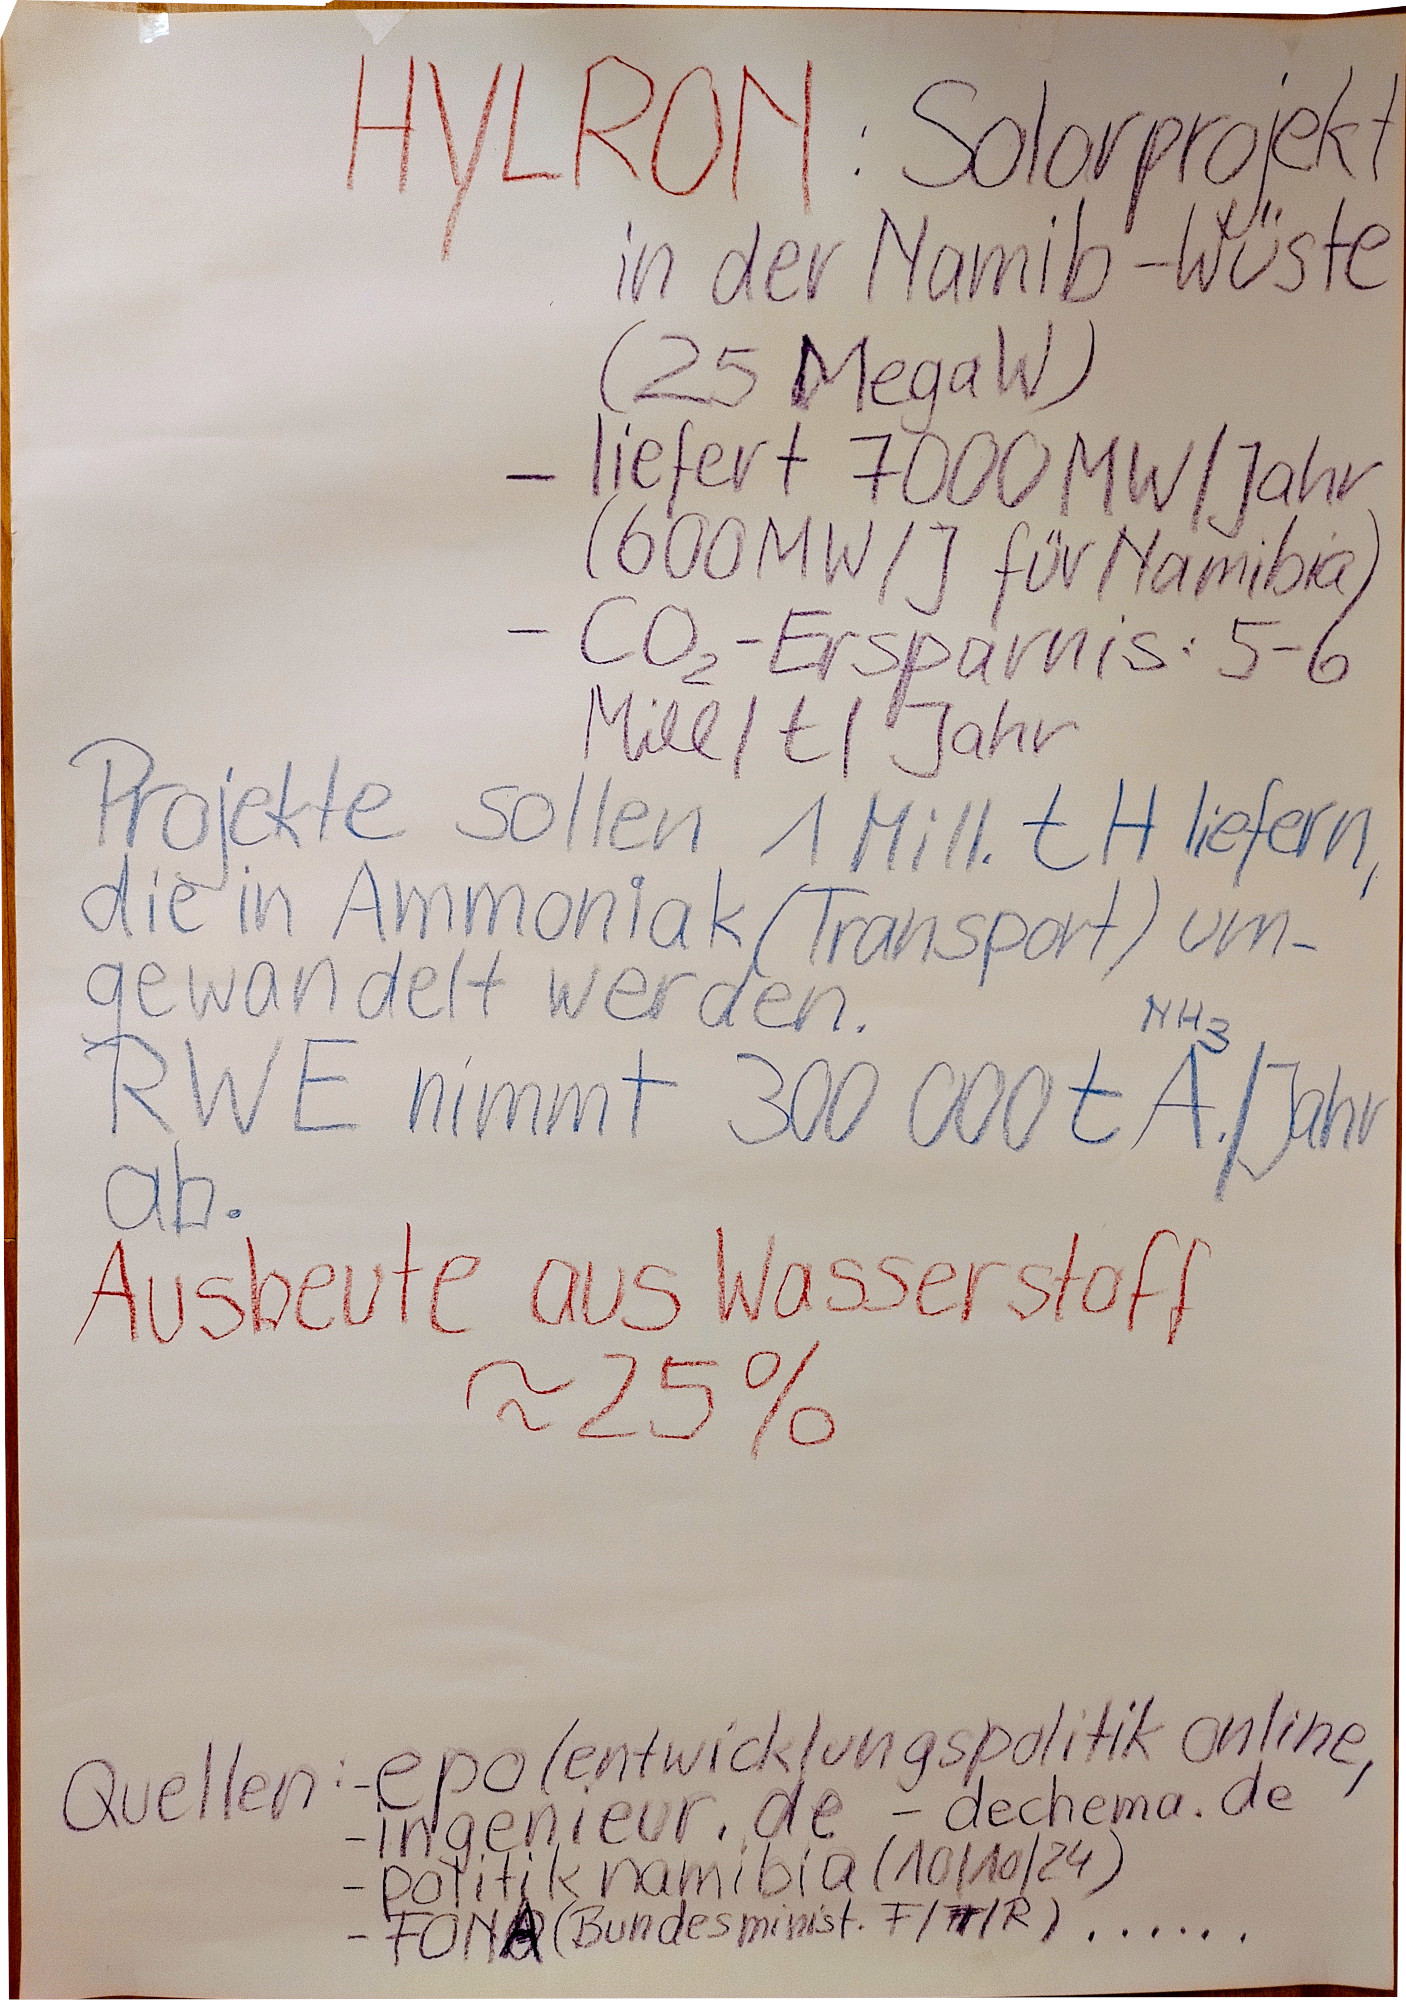 HYLRON: Solarprojekt
in der Namib-Wüste
(25 MegaW)
- liefert 7000 MW/Jahr
(600 MW/J für Namibia)
- CO₂-Ersparnis: 5-6
Mill/t/Jahr
Projekte sollen 1 Mill. t H liefern,
die in Ammoniak (Transport) um-
gewandelt werden.
NH₃
RWE nimmt 300 000 t A./Jahr
ab.
Ausbeute aus Wasserstoff
≈25%
Quellen: - epo/entwicklungspolitik online,
- ingenieur.de - dechema.de
- politik namibia (10/10/24)
- FONA (Bundesminist. F/ /R) ......